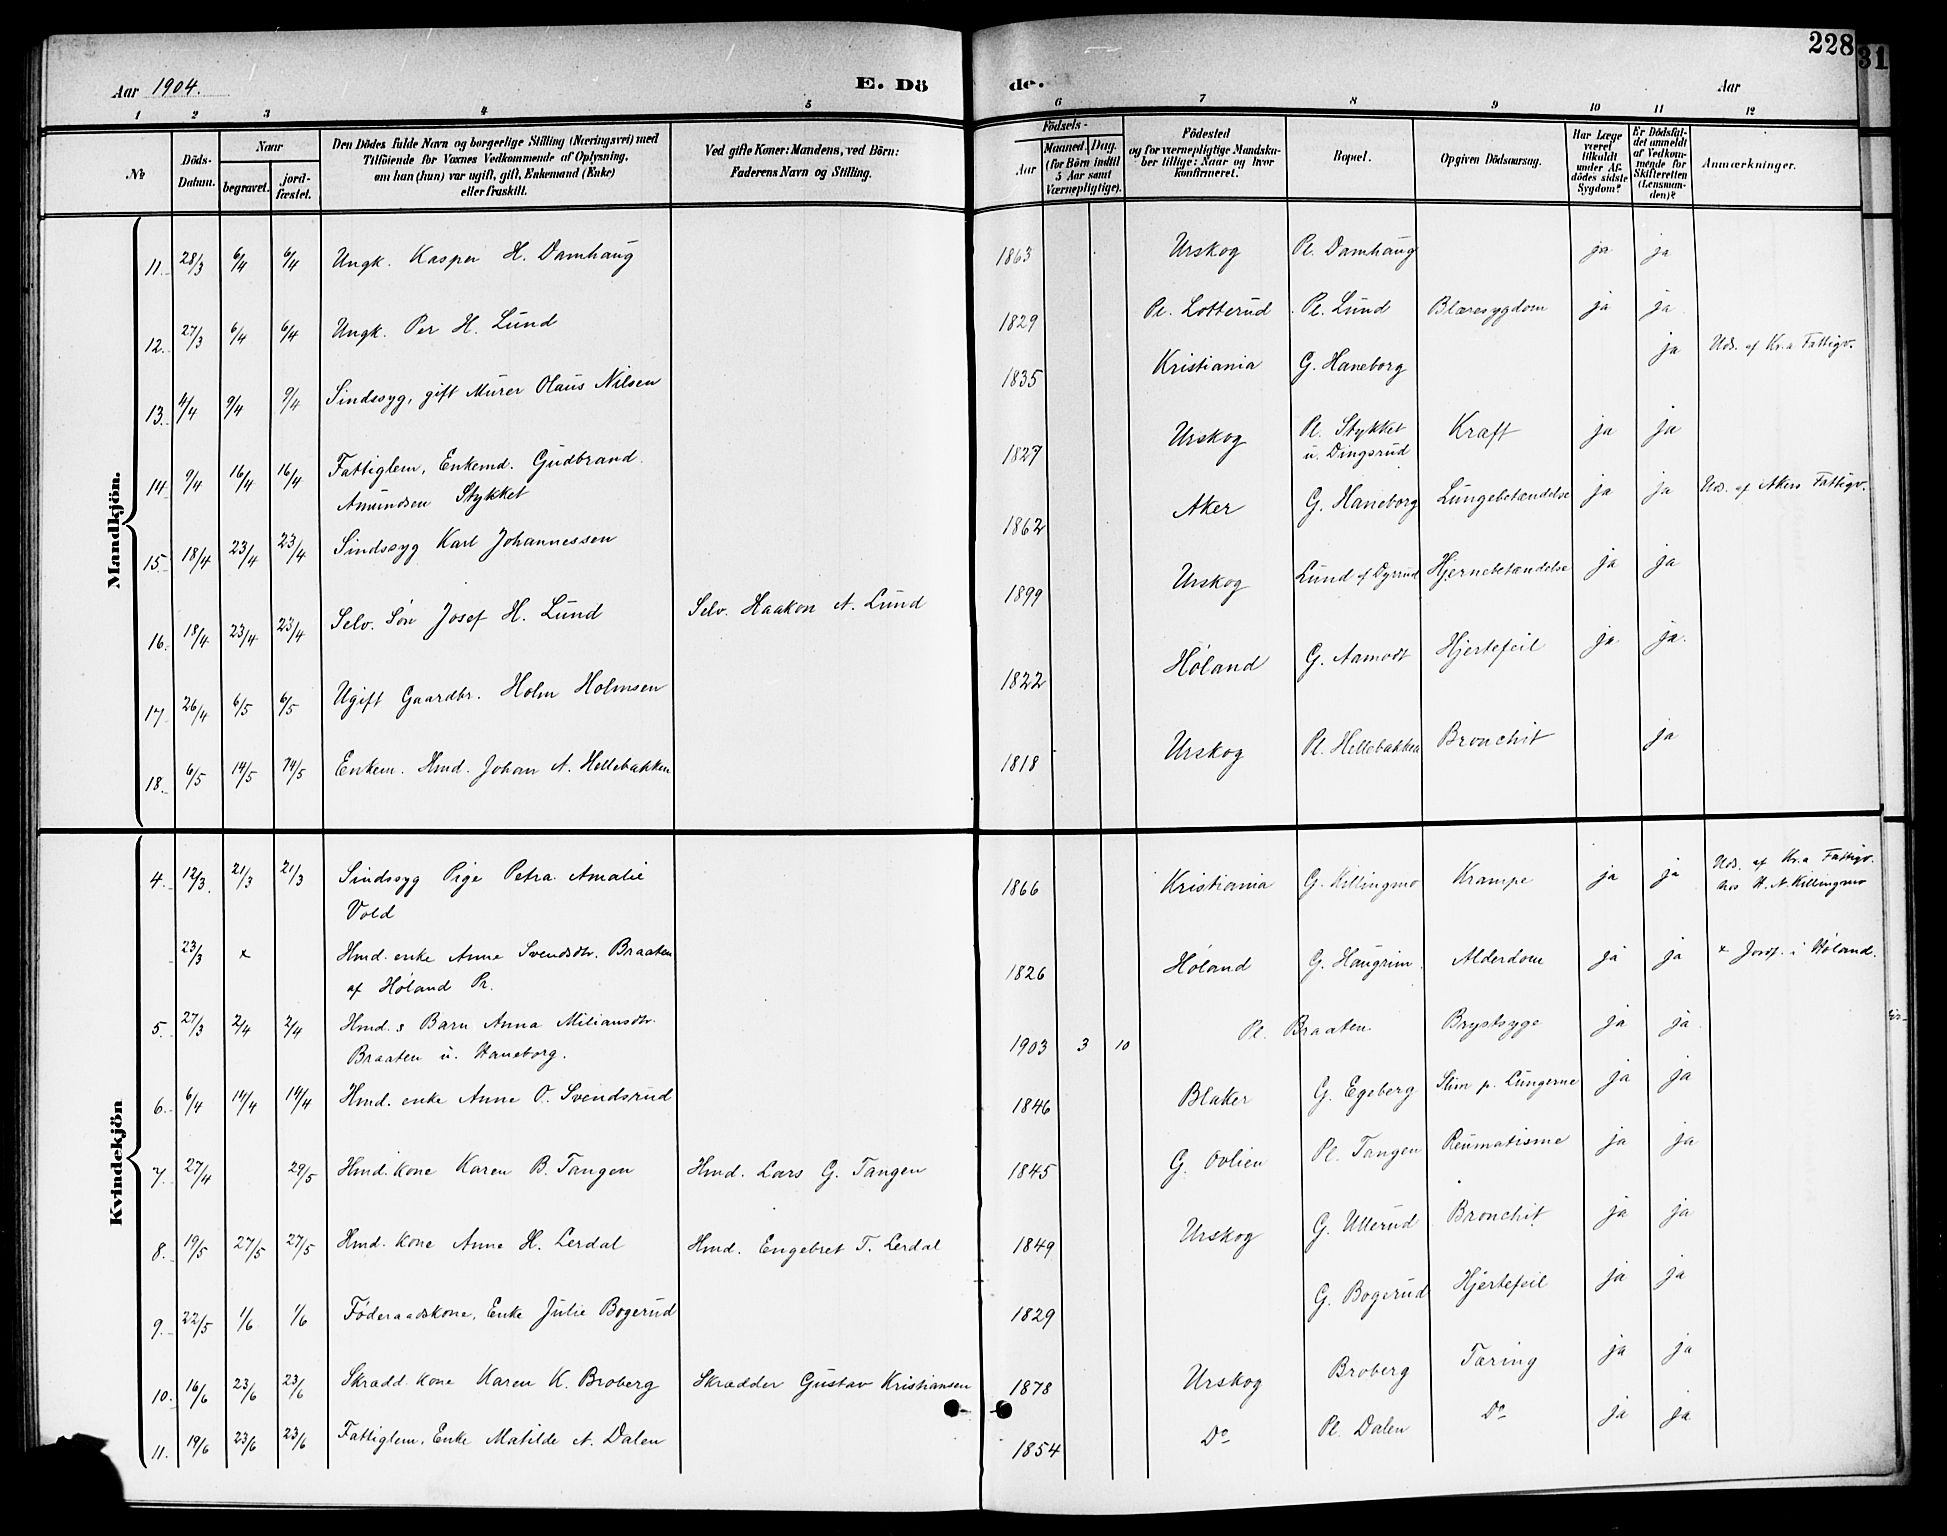 228
31
Aar 1904.
E. Dö
de.
Aar
1 2 3 4 5 6 7 8 9 10 11 12
No
Döds-Datum.
Naar
begravet.
jord-fæstet.
Den Dödes fulde Navn og borgerlige Stilling (Næringsvei) med
Tilföiende for Voxnes Vedkommende af Oplysning,
om han (hun) var ugift, gift, Enkemand (Enke)
eller fraskilt.
Ved gifte Koner: Mandens, ved Börn:
Faderens Navn og Stilling.
Födsels-
Aar
Maaned. Dag.
(for Börn indtil
5 Aar samt
Værnepligtige).
Födested
og for værnepligtige Mandska-
ber tillige: Naar og hvor
konfirmeret.
Bopæl.
Opgiven Dödsaarsag.
Har Læge
været
tilkaldt
under Af-
dödes sidste
Sygdom?
Er Dödsfal-
det anmeldt
af Vedkom-
mende for
Skifteretten
(Lensman-
den)?
Anmærkninger.
Mandkjön.
11. 28/3 6/4 6/4 Ungk. Kasper H. Damhaug 1863 Urskog Pl. Damhaug ja ja
12. 27/3 6/4 6/4 Ungk. Per H. Lund 1829 Pl. Lotterud Pl. Lund Blæresygdom ja ja
13. 4/4 9/4 9/4 Sindssyg, gift Murer Olaus Nilsen 1835 Kristiania G. Haneborg ja Uds. af Kr.a Fattigv.
14. 9/4 16/4 16/4 Fattiglem, Enkemd. Gudbrand
Amundsen Stykket 1827 Urskog Pl. Stykket
u. Dingsrud Kræft ja ja
15. 18/4 23/4 23/4 Sindssyg Karl Johannessen 1862 Aker G. Haneborg Lungebetændelse ja ja Uds. af Akers Fattigv.
16. 18/4 23/4 23/4 Selv. Søn Josef H. Lund Selv. Haakon A. Lund 1899 Urskog Lund af Dyrrud Hjernebetændelse ja ja
17. 26/4 6/5 6/5 Ugift Gaardbr. Holm Holmsen 1822 Høland G. Aamodt Hjertefeil ja ja.
18. 6/5 14/5 14/5 Enkem. Hmd. Johan A. Hellebakken 1818 Urskog Pl. Hellebakken Bronchit ja
Kvindekjön
4. 12/3. 21/3 21/3 Sindssyg Pige Petra Amalie
Vold 1866 Kristiania G. Killingmo Krampe ja ja Uds. af Kr.a Fattigv.
hos H. N. Killingmo
23/3 x Hmd. enke Anne Svendsdtr. Braaten
af Høland Pr. 1826 Høland G. Haugrim Alderdom ja ja x Jordf. i Høland.
5. 27/3 2/4 2/4 Hmd.s Barn Anna Miliansdtr.
Braaten u. Haneborg. 1903 3 10 Pl. Braaten Brystsyge ja ja
6. 6/4 14/4 14/4 Hmd. enke Anne O. Svendsrud 1846 Blaker G. Egeberg Slim p. Lungerne ja ja
7. 27/4 29/5 Hmd. kone Karen B. Tangen Hmd. Lars G. Tangen 1845 G. Ovlien Pl. Tangen Reumatisme ja ja
8. 19/5 27/5 27/5 Hmd. kone Anne H. Lerdal Hmd. Engebret T. Lerdal 1849 Urskog G. Ullerud Bronchit ja ja
9. 22/5 1/6 1/6 Føderaadskone, Enke Julie Bogerud 1829 G. Bogerud Hjertefeil ja ja
10. 16/6 23/6 23/6 Skrædd. kone Karen K. Broberg Skrædder Gustav Kristiansen 1878 Urskog Broberg Tæring ja ja
11. 19/6 23/6 23/6 Fattiglem, Enke Matilde A. Dalen 1854 Do Pl. Dalen Do ja ja